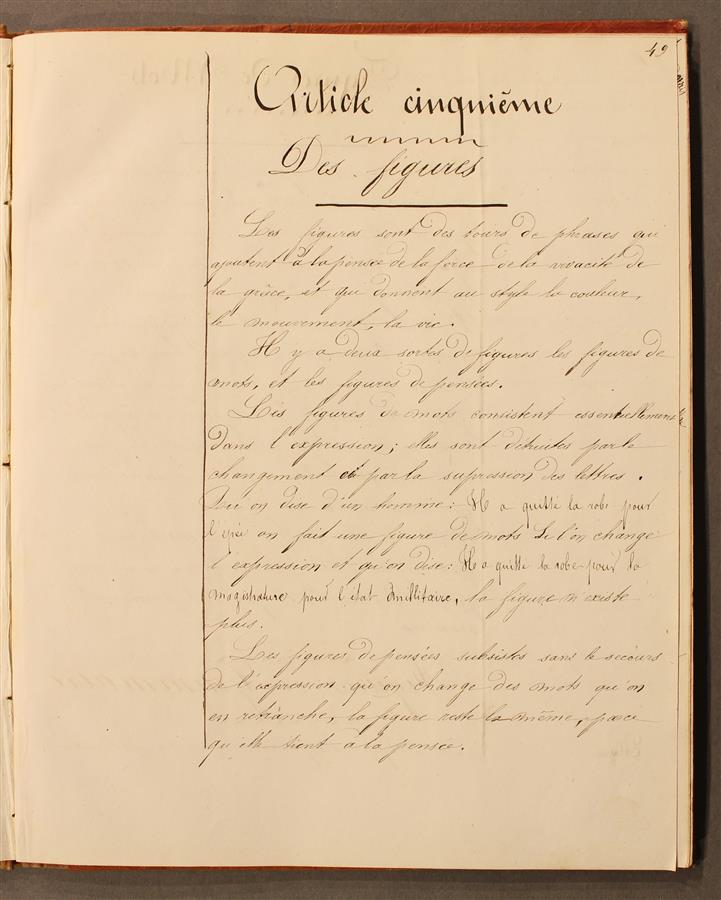 49
Article cinquième
Des figures
Les figures sont des tours de phrases qui
ajoutent à la pensée de la force de la vivacité de
la grâce, et qui donnent au style la couleur,
le mouvement, la vie.
Il y a deux sortes de figures les figures de
mots, et les figures de pensées.
Les figures de mots consistent essentiellement
dans l'expression; elles sont détruites par le
changement et par la supression des lettres.
on dise d'un homme: Il a quitté la robe pour
l'épée on fait une figure de mots Si l'on change
l'expression et qu'on dise: Il a quitté la robe pour la
magistrature pour l'état millitaire, la figure n'existe
plus.
Les figures de pensées subsistes sans le secours
de l'expression qu'on change des mots qu'on
en retranche, la figure reste la même, parce
qu'elle tient à la pensée.